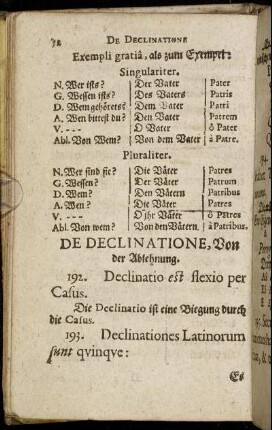 72 DE DECLINATIONE
Exempli gratiâ, als zum Exempel:
Singulariter.
N. Wer ists? Der Vater Pater
G. Wessen ists? Des Vaters Patris
D. Wem gehörets? Dem Vater Patri
A. Wen bittest du? Den Vater Patrem
V. --- O Vater ô Pater
Abl. Von Wem? Von dem Vater à Patre.
Pluraliter.
N. Wer sind sie? Die Väter Patres
G. Wessen? Der Väter Patrum
D. Wem? Den Vätern Patribus
A. Wen? Die Väter Patres
V. --- O ihr Väter ô Patres
Abl. Von wem? Von den Vätern. à Patribus
DE DECLINATIONE, Von
der Ablehnung.
192. Declinatio est flexio per
Casus.
Die Declinatio ist eine Biegung durch
die Casus.
193. Declinationes Latinorum
sunt qvinqve:
Es